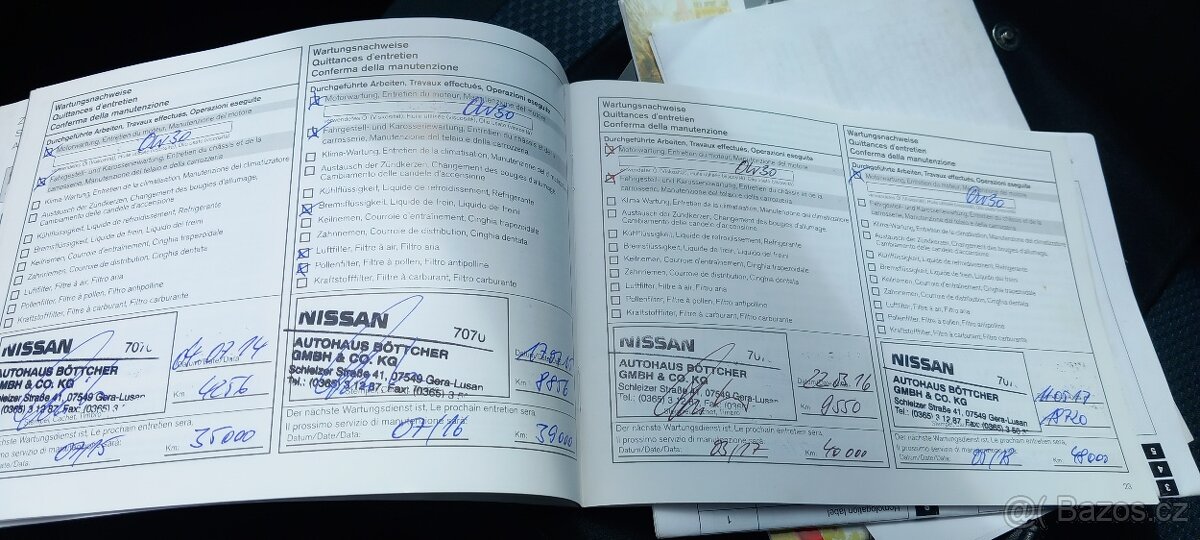 Wartungsnachweise
Quittances d'entretien
Conferma della manutenzione
Durchgeführte Arbeiten, Travaux effectués, Operazioni eseguite
Motorwartung, Entretien du moteur, Manutenzione del motore
0W30
Fahrgestell- und Karosseriewartung, Entretien du châssis et de la
carrosserie, Manutenzione del telaio e della carrozzeria
Klima-Wartung, Entretien de la climatisation, Manutenzione del climatizzatore
Austausch der Zündkerzen, Changement des bougies d'allumage,
Cambiamento delle candele d'accensione
Kühlflüssigkeit, Liquide de refroidissement, Refrigerante
Bremsflüssigkeit, Liquide de frein, Liquido dei freni
Keilriemen, Courroie d'entraînement, Cinghia trapezoidale
Zahnriemen, Courroie de distribution, Cinghia dentata
Luftfilter, Filtre à air, Filtro aria
Pollenfilter, Filtre à pollen, Filtro antipolline
Kraftstofffilter, Filtre à carburant, Filtro carburante
NISSAN
AUTOHAUS BÖTTCHER
GMBH & CO. KG
07549 Gera-Lusan
4256
Der nächste Wartungsdienst ist, Le prochain entretien sera,
Il prossimo servizio di manutenzione sarà
Datum/Date/Data: 07/15 Km: 35000
Wartungsnachweise
Quittances d'entretien
Conferma della manutenzione
Durchgeführte Arbeiten, Travaux effectués, Operazioni eseguite
Motorwartung, Entretien du moteur, Manutenzione del motore
0W30
Fahrgestell- und Karosseriewartung, Entretien du châssis et de la
carrosserie, Manutenzione del telaio e della carrozzeria
Klima-Wartung, Entretien de la climatisation, Manutenzione del climatizzatore
Austausch der Zündkerzen, Changement des bougies d'allumage,
Cambiamento delle candele d'accensione
Kühlflüssigkeit, Liquide de refroidissement, Refrigerante
Bremsflüssigkeit, Liquide de frein, Liquido dei freni
Keilriemen, Courroie d'entraînement, Cinghia trapezoidale
Zahnriemen, Courroie de distribution, Cinghia dentata
Luftfilter, Filtre à air, Filtro aria
Pollenfilter, Filtre à pollen, Filtro antipolline
Kraftstofffilter, Filtre à carburant, Filtro carburante
NISSAN 7070
AUTOHAUS BÖTTCHER
GMBH & CO. KG
Schleizer Straße 41, 07549 Gera-Lusan
Tel.: (0365) 3 12 87, Fax: (0365) 3
Km: 8856
Der nächste Wartungsdienst ist, Le prochain entretien sera,
Il prossimo servizio di manutenzione sarà
Datum/Date/Data: 07/16 Km: 39000
Wartungsnachweise
Quittances d'entretien
Conferma della manutenzione
Durchgeführte Arbeiten, Travaux effectués, Operazioni eseguite
Motorwartung, Entretien du moteur, Manutenzione del motore
0W30
Fahrgestell- und Karosseriewartung, Entretien du châssis et de la
carrosserie, Manutenzione del telaio e della carrozzeria
Klima-Wartung, Entretien de la climatisation, Manutenzione del climatizzatore
Austausch der Zündkerzen, Changement des bougies d'allumage,
Cambiamento delle candele d'accensione
Kühlflüssigkeit, Liquide de refroidissement, Refrigerante
Bremsflüssigkeit, Liquide de frein, Liquido dei freni
Keilriemen, Courroie d'entraînement, Cinghia trapezoidale
Zahnriemen, Courroie de distribution, Cinghia dentata
Luftfilter, Filtre à air, Filtro aria
Pollenfilter, Filtre à pollen, Filtro antipolline
Kraftstofffilter, Filtre à carburant, Filtro carburante
NISSAN
AUTOHAUS BÖTTCHER
GMBH & CO. KG
Schleizer Straße 41, 07549 Gera-Lusan
22.03.16
Km 9550
Der nächste Wartungsdienst ist, Le prochain entretien sera,
Il prossimo servizio di manutenzione sarà
Datum/Date/Data: 03/17 Km 40000
Wartungsnachweise
Quittances d'entretien
Conferma della manutenzione
Durchgeführte Arbeiten, Travaux effectués, Operazioni eseguite
Motorwartung, Entretien du moteur, Manutenzione del motore
0W30
Fahrgestell- und Karosseriewartung, Entretien du châssis et de la
carrosserie, Manutenzione del telaio e della carrozzeria
Klima-Wartung, Entretien de la climatisation, Manutenzione del climatizzatore
Austausch der Zündkerzen, Changement des bougies d'allumage,
Cambiamento delle candele d'accensione
Kühlflüssigkeit, Liquide de refroidissement, Refrigerante
Bremsflüssigkeit, Liquide de frein, Liquido dei freni
Keilriemen, Courroie d'entraînement, Cinghia trapezoidale
Zahnriemen, Courroie de distribution, Cinghia dentata
Luftfilter, Filtre à air, Filtro aria
Pollenfilter, Filtre à pollen, Filtro antipolline
Kraftstofffilter, Filtre à carburant, Filtro carburante
NISSAN
AUTOHAUS BÖTTCHER
GMBH & CO. KG
Schleizer Straße 41, 07549 Gera-Lusan
Tel.: (0365) 3 12 87, Fax: (0365)
Der nächste Wartungsdienst ist, Le prochain entretien sera,
Il prossimo servizio di manutenzione sarà
Datum/Date/Data: 05/18 Km 48000
23
5
4
3
Homologation label
1
Bazos.cz